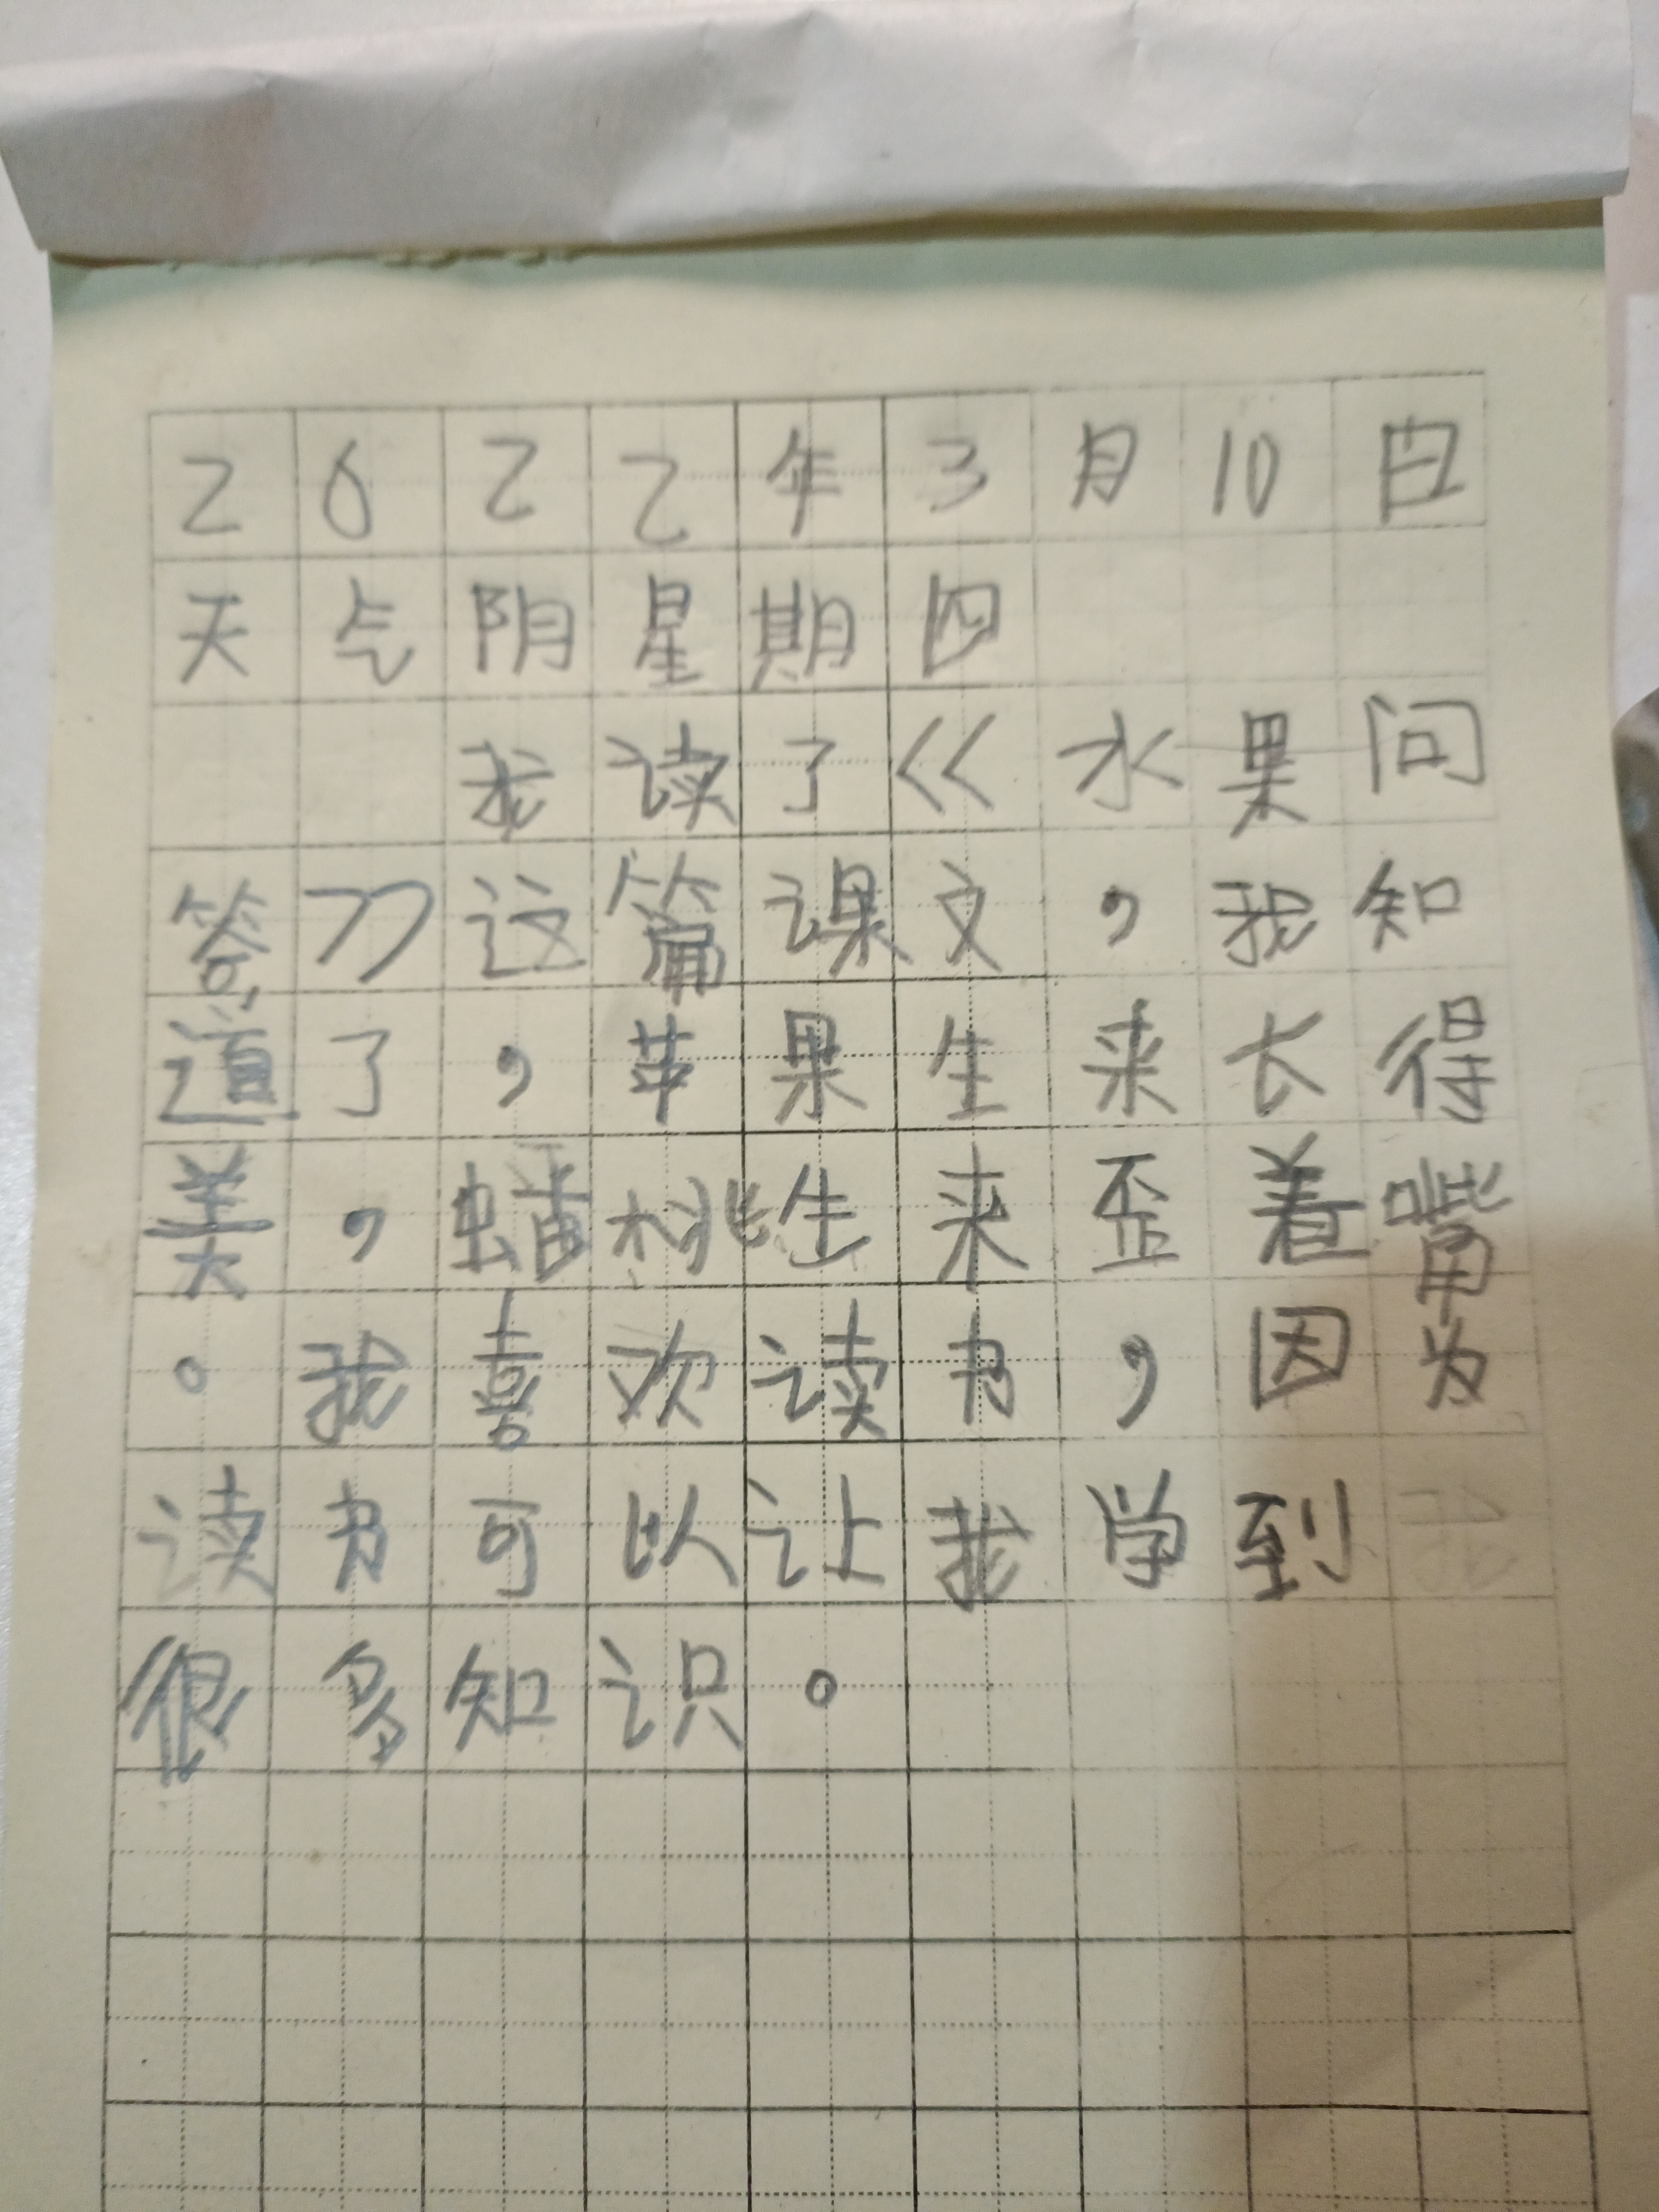 2022年3月10日
天气阴星期四
我读了《水果问
答》这篇课文，我知
道了，苹果生来长得
美，蟠桃生来歪着嘴
。我喜欢读书，因为
读书可以让我学到
很多知识。